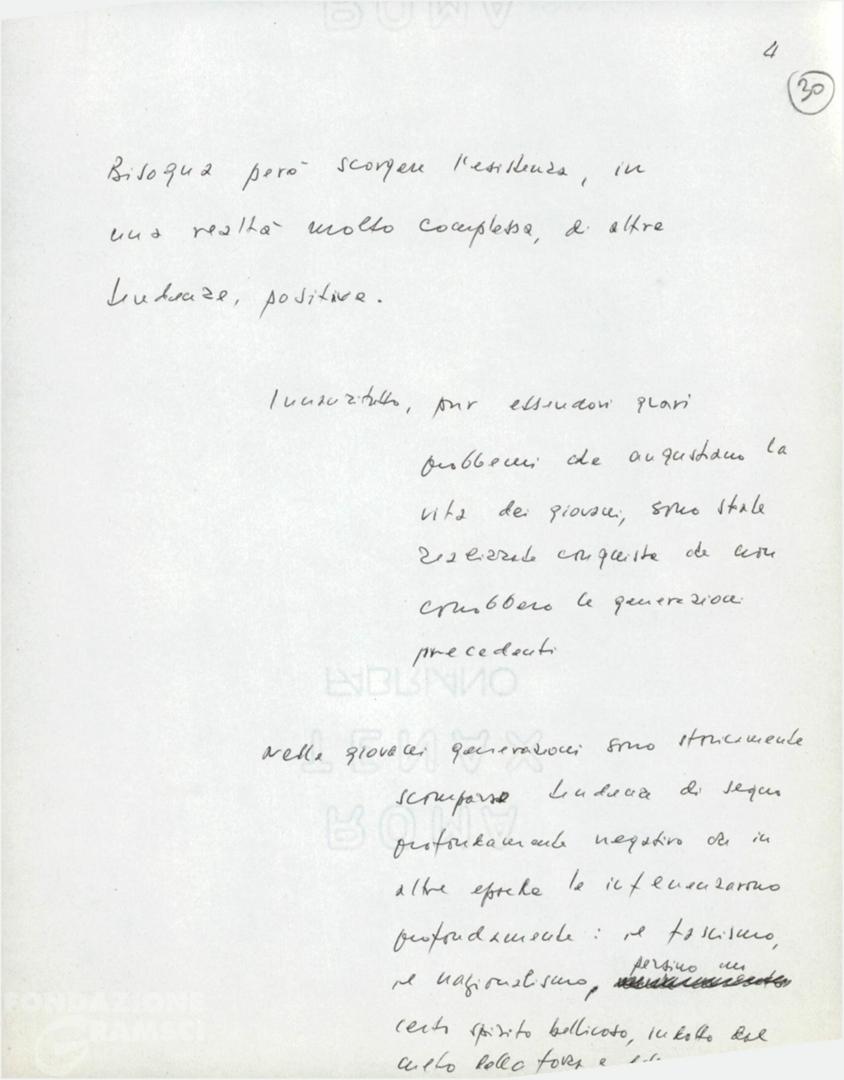 ROMA
4
30
Bisogna però scorgere l'esistenza, in
una realtà molto complessa, di altre
tendenze, positive.
Innanzitutto, pur essendovi gravi
problemi che angustiano la
vita dei giovani, sono state
realizzate conquiste che non
conobbero le generazioni
precedenti
FABRIANO
Nelle giovani generazioni sono storicamente
TENAX
scomparse tendenze di segno
ROMA
profondamente negativo che in
altre epoche le influenzarono
profondamente: il fascismo,
il nazionalismo, persino un
certo spirito bellicoso, indotto dal
culto della forza e
FONDAZIONE
GRAMSCI